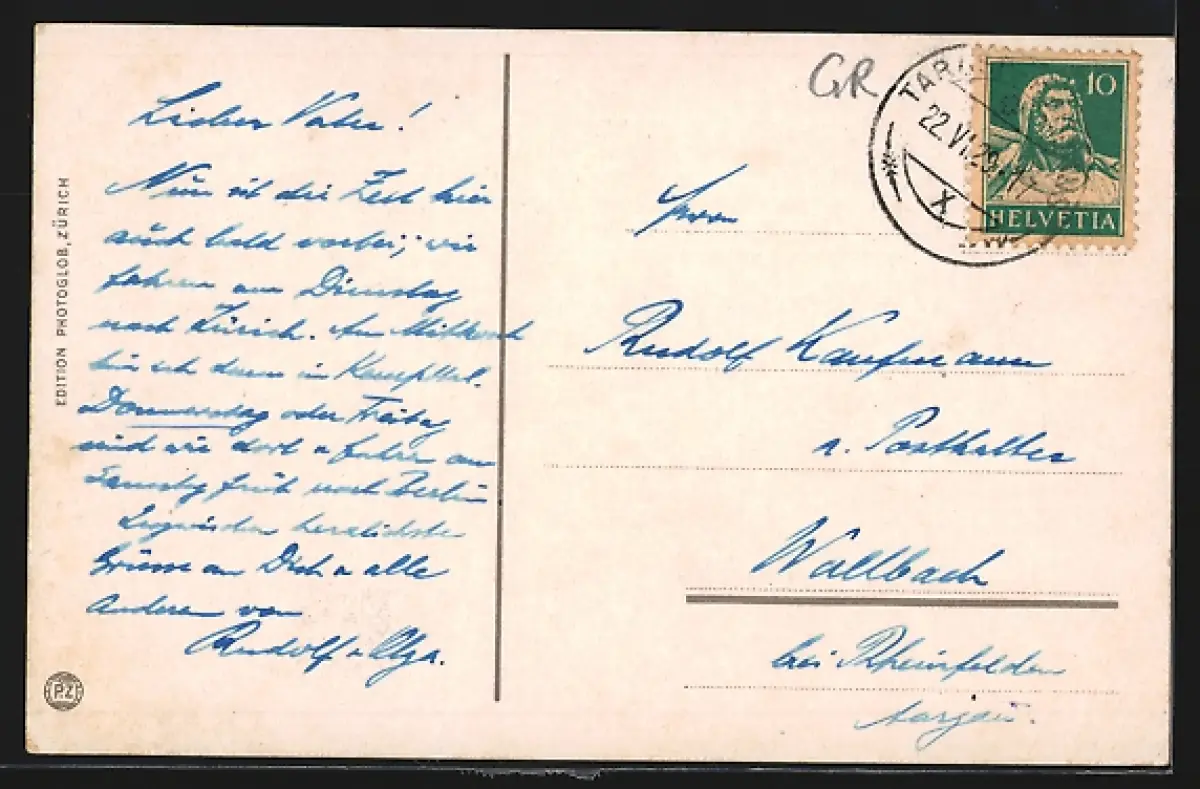 Lieber Vater!
Nun ist die Zeit hier
auch bald vorbei; wir
fahren am Dienstag
nach Zürich. Am Mittwoch
bin ich dann in Kempttal.
Donnerstag oder Freitag
sind wir dort u fahren am
Samstag früh nach Berlin
herzlichste
Grüsse an Dich u alle
Anderen von
Rudolf u Olga.
EDITION PHOTOGLOB, ZÜRICH
P.Z
GR
TAR
22.VI.29
X
10
HELVETIA
Herrn
Rudolf Kaufmann
a. Posthalter
Wallbach
bei Rheinfelden
Aargau.